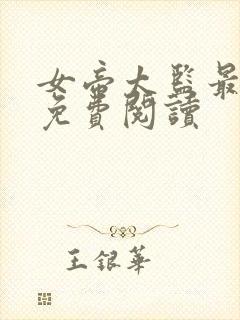 女帝大監最
免費閱讀
王銀華